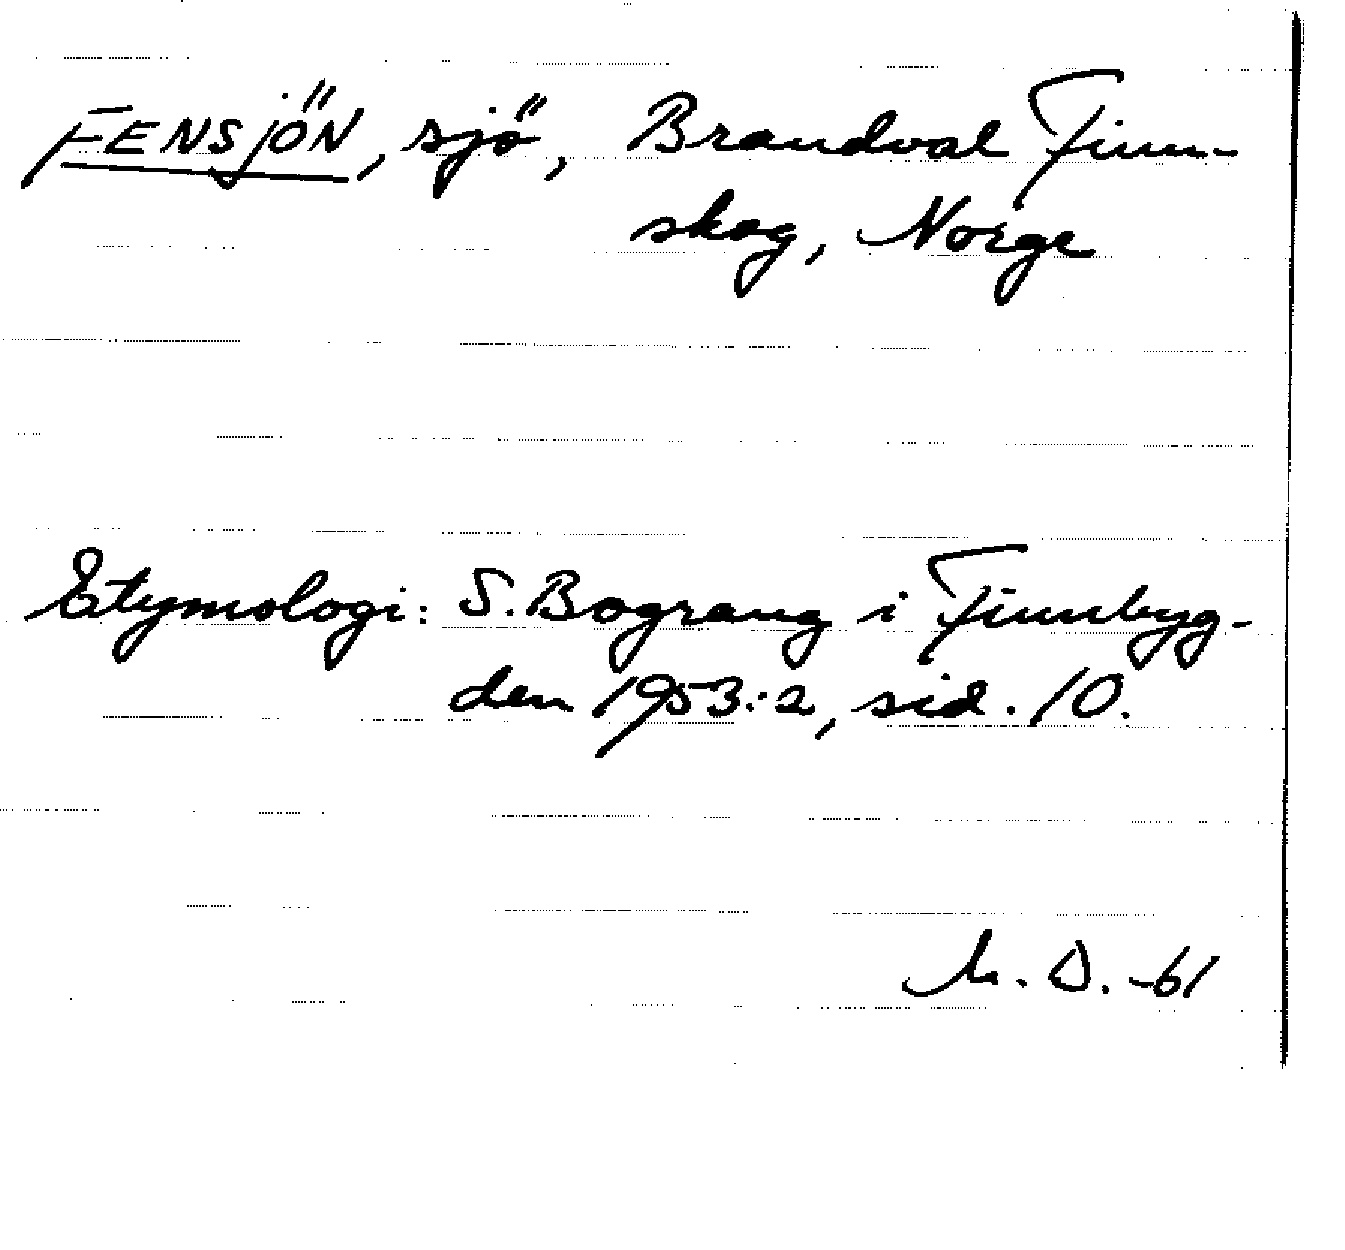 FENSJÖN, sjö, Brandval Finn-
skog, Norge
Etymologi: S. Bograng i Finnbyg-
den 1953:2, sid. 10.
M. D. -61